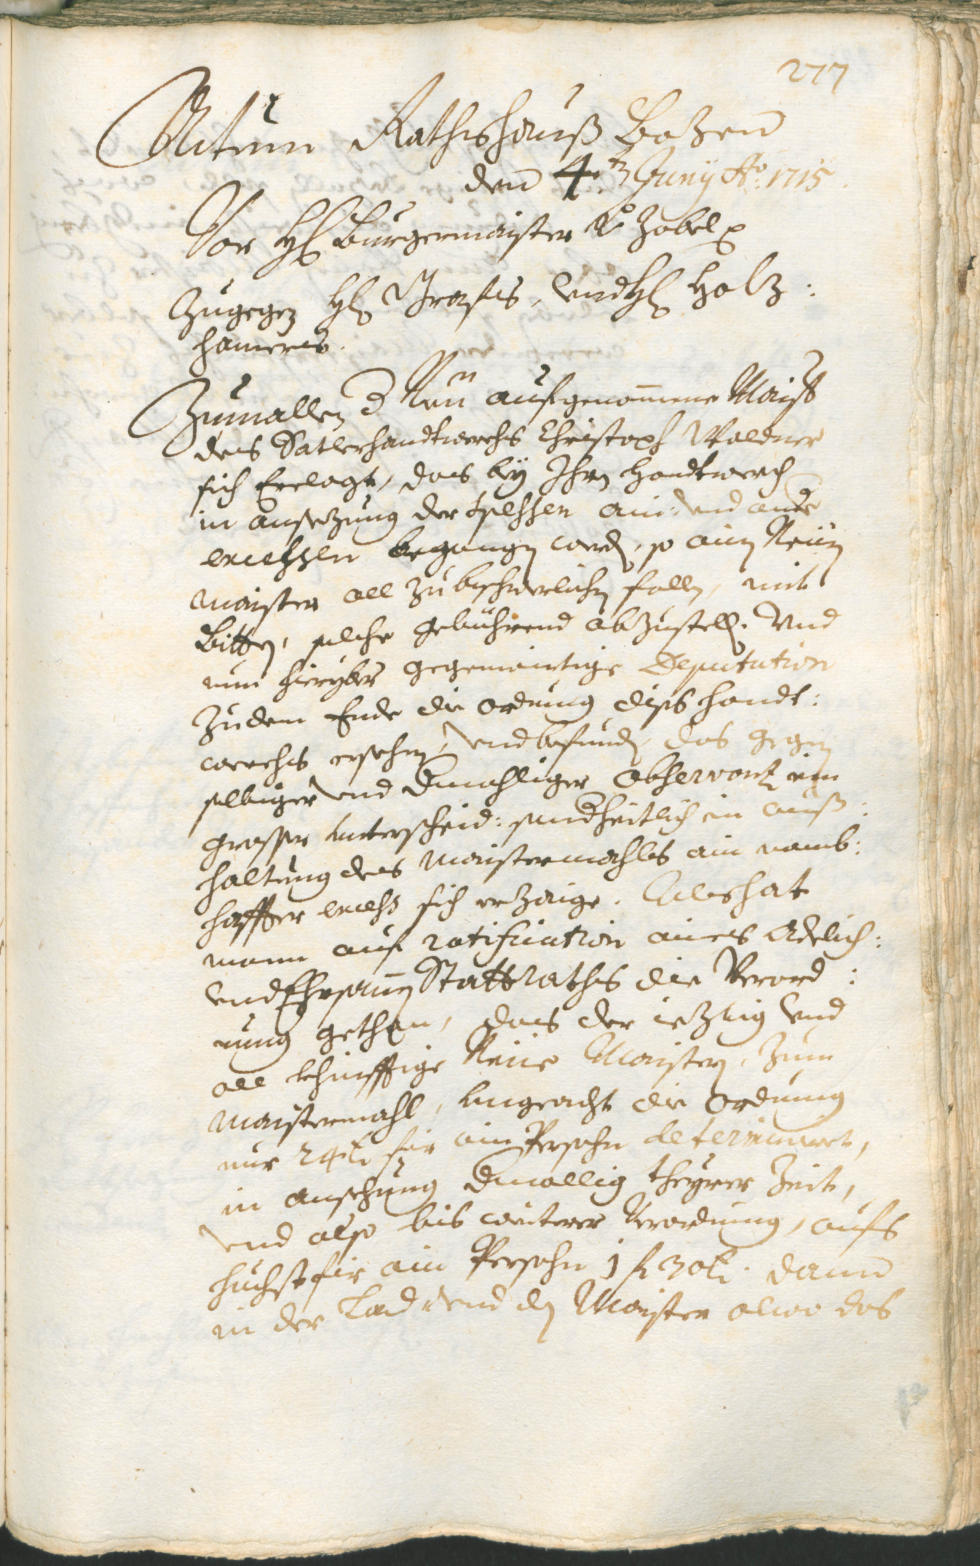 277
Actum Rathshauß Botzen
den 4.t Juny Ao: 1715.
Vor H: Burgermaister v: Zobel
Zugegen H: Grafis, und H: Holz:
hamerer.
Zumallen d Neu aufgenommene Maister
des Satlerhandtwerchs Christoph Waldner
sich beclagt, das bey Ihren handtwerch
in ansezung der Spessen ain: und ande
excessen begangen werden, so ainen Neuen
maister all zu beschwerlichen fallen, mit
Bitten, solche gebührend abzustellen. Und
nun hieryber gegenwirtige Deputation
zu dem Ende die ordnung diss handt:
werchs ersehen, und befunden, das gegen
selbiger und dermahliger observantz ein
grosser unterscheid: sonderheitlich in auß:
haltung des maistermahls ain namb:
haffter excess sich erzaige. Als hat
mann auf ratification aines Adelich:
und Ehrsamen Stattraths die Verord:
nung gethan, das der iezig und
all khinfftige Neue Maister, zum
maistermahl, ungeacht die ordnung
nur 24 kr für ain Persohn determiniert,
in ansehung dermallig theyrer Zeit,
und also bis weiterer Verordnung, aufs
höchst für ain Persohn 1 f 30 kr. dann
in der Lad und den Maister alwo das